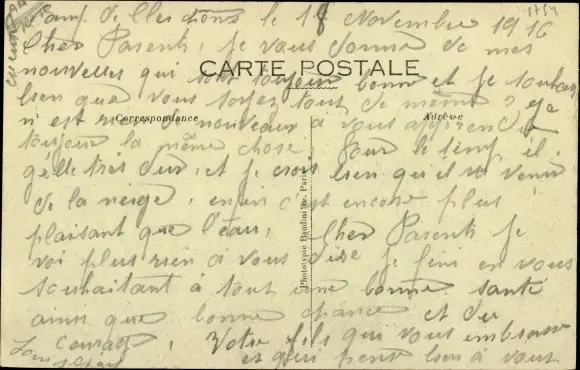 Camp de le 18 Novembre 1916
1754
Cher Parents, je vous donne de mes
nouvelles qui sont toujours bonne et je souhaite
CARTE POSTALE
bien que vous soyez tout de même, je
n'est rien de nouveaux à vous apprendre
Correspondance
Adresse
toujour la même chose. Pour le temp il
gelle très dur, et je crois bien qu'il va venir
de la neige, enfin c'est encore plus
plaisant que l'eau, Cher Parents je
voi plus rien à vous dire je fini en vous
souhaitant à tout une bonne santé
ainsi que bonne chance et du
courage, Votre fils qui vous embrasse
et qui pense bien à vous
Phototypie Baudinière, Paris